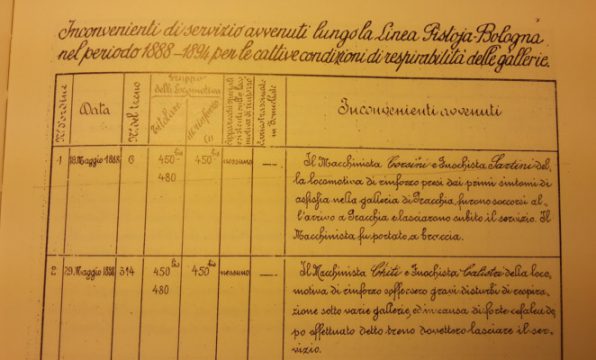 Inconvenienti di servizio avvenuti lungo la Linea Pistoja-Bologna
nel periodo 1888-1894 per le cattive condizioni di respirabilità delle gallerie.
N° d'ordine
Data
N° del treno
Gruppo
della Locomotiva
titolare
di rinforzo
Inconvenienti avvenuti
1
18 Maggio 1888
6
450 bis
480
450 bis
nessuno
—
Il Macchinista Corsini e Fuochista Sartini del-
la locomotiva di rinforzo presi dai primi sintomi di
asfissia nella galleria di Pracchia, furono soccorsi al-
l'arrivo a Pracchia e lasciarono subito il servizio. Il
Macchinista fu portato, a braccia.
2
29 Maggio 1888
314
450 bis
480
450 bis
nessuno
—
Il Macchinista Chiti e Fuochista Calistri della loco-
motiva di rinforzo soffersero gravi disturbi di respira-
zione sotto varie gallerie, ed in causa di forte cefalea do-
po effettuato detto treno dovettero lasciare il ser-
vizio.